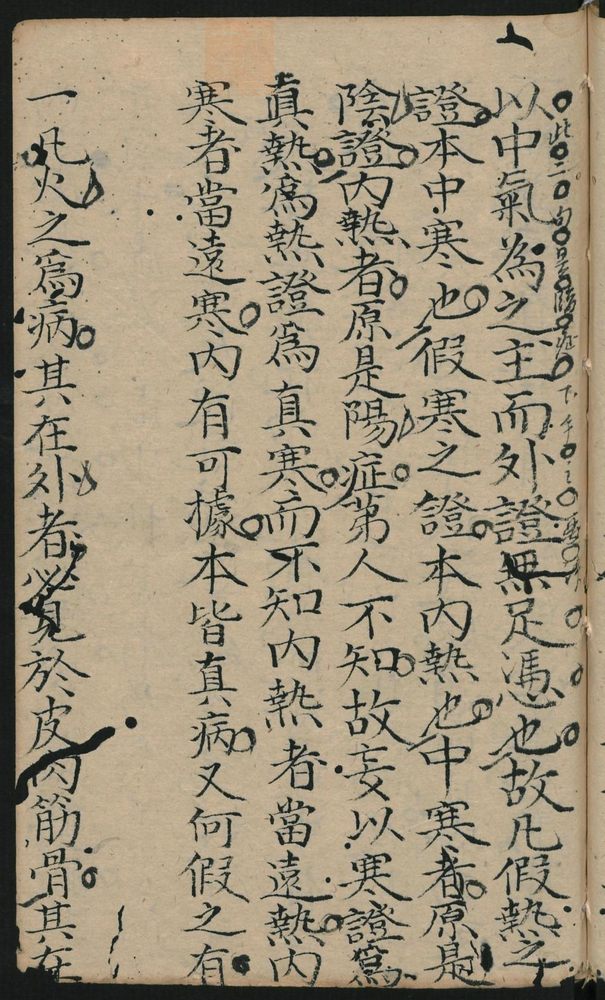 此二句是陰症下
以中氣為之主而外證無足憑也故凡假熱之
證本中寒也假寒之證本内熱也中寒者原是
陰證内熱者原是陽症第人不知故妄以寒證爲
真熱爲熱證爲真寒而不知内熱者當遠熱内
寒者當遠寒内有可據本皆真病又何假之有
一凡火之爲病其在外者必見於皮肉筋骨其在